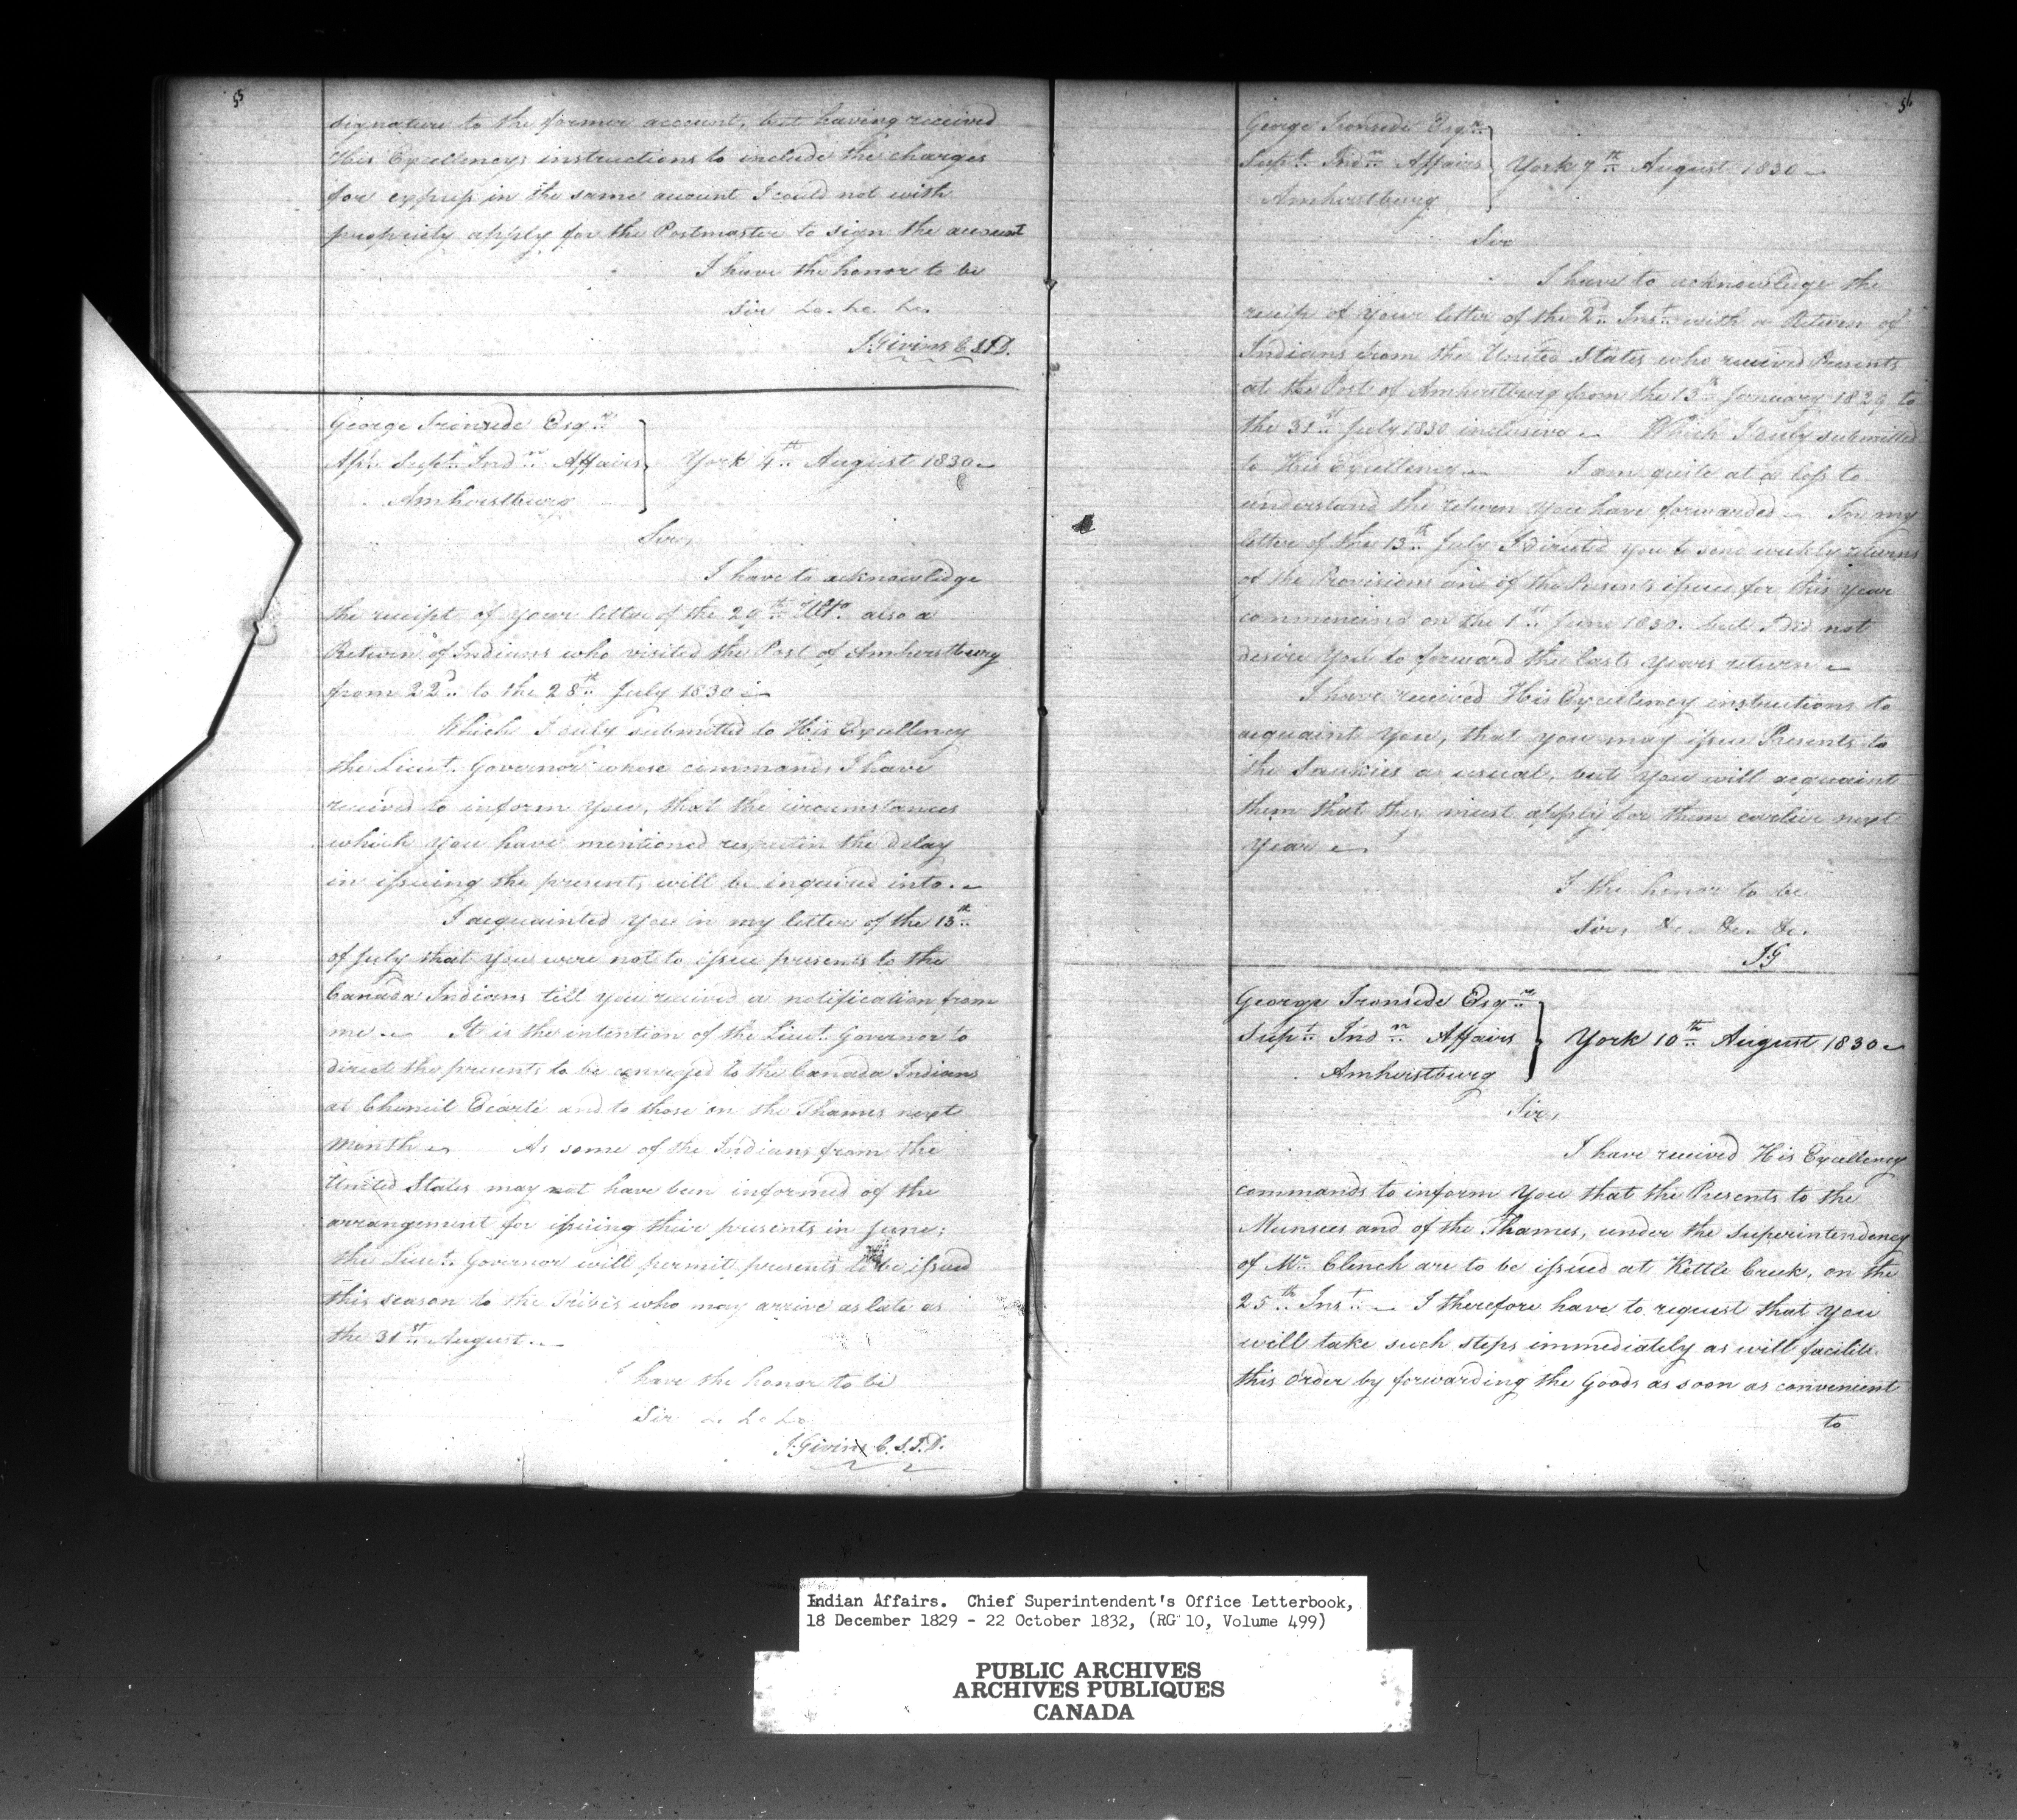 55
signature to the former account, but having received
His Excellencys instructions to include the charges
for express in the same account I could not with
propriety apply for the Postmaster to sign the account
I have the honor to be
Sir &c. &c. &c.
J. Givins C.S.I.D.
George Ironside Esqre
Asst. Supt. Indn. Affairs
York 4th August 1830
Amherstburg
Sir,
I have to acknowledge
the receipt of your letter of the 29th Ulto. also a
Return of Indians who visited the Post of Amherstburg
from 22d. to the 28th July 1830
Which I duly submitted to His Excellency
the Lieut. Governor whose commands I have
received to inform you, that the circumstances
which you have mentioned respectin the delay
in issuing the presents will be inquired into.
I acquainted you in my letter of the 13th
of July that you were not to issue presents to the
Canada Indians till you received a notification from
me It is the intention of the Lieut. Governor to
direct the presents to be conveyed to the Canada Indians
at Cheneil Ecarté and to those on the Thames next
Month As some of the Indians from the
United States may not have been informed of the
arrangement for issuing their presents in June;
the Lieut. Governor will permit presents to be issued
this season to the Tribes who may arrive as late as
the 31st August.
I have the honor to be
Sir &c &c &c
J. Givins C.S.I.D.
56
George Ironside Esqre
Supt. Indn. Affairs
York 7th August 1830
Amherstburg
Sir
I have to acknowledge the
receip of your letter of the 2d. Inst. with a Return of
Indians from the United States who received Presents
at the Post of Amherstburg from the 13th January 1829 to
the 31st July 1830 inclusive Which I duly submitted
to His Excellency I am quite at a loss to
understand the return you have forwarded my
letter of the 13th July I directed you to send weekly returns
of the Provisions and of the Presents issued for this year
commencing on the 1st June 1830. but I did not
desire you to forward the lasts years return
I have received His Excellency instructions to
acquaint you, that you may issue Presents to
the Saukies as usual, but you will acquaint
them that they must apply for them earlier next
Year
I the honor to be
Sir, &c. &c. &c.
JG
George Ironside Esqre
Supt. Indn. Affairs
York 10th August 1830
Amherstburg
Sir,
I have received His Excellency
commands to inform you that the Presents to the
Munsees and of the Thames, under the Superintendency
of Mr. Clench are to be issued at Kettle Creek, on the
25th Inst. I therefore have to request that you
will take such steps immediately as will facilite
this order by forwarding the Goods as soon as convenient
to
Indian Affairs. Chief Superintendent's Office Letterbook,
18 December 1829 - 22 October 1832, (RG 10, Volume 499)
PUBLIC ARCHIVES
ARCHIVES PUBLIQUES
CANADA